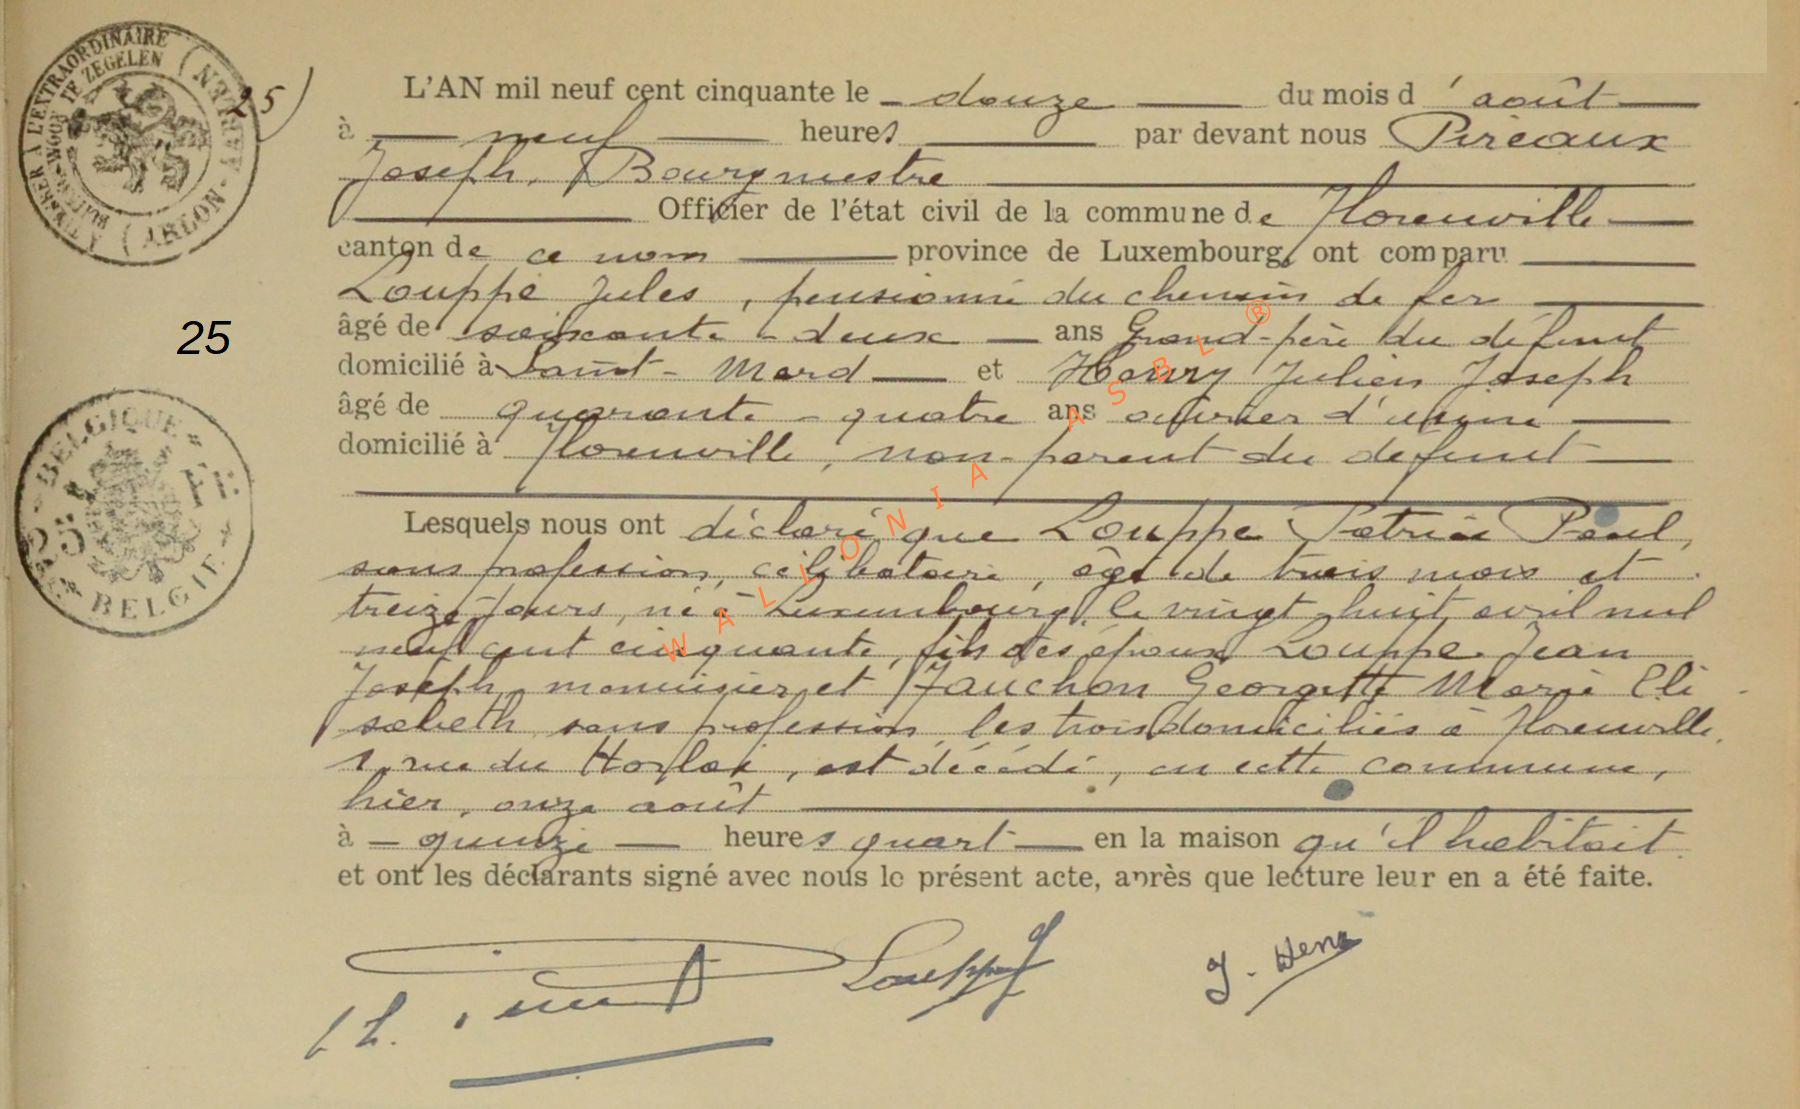 A TIMBRER A L'EXTRAORDINAIRE
BUITENGEWOON TE ZEGELEN
(ARLON - AARLEN)
25)
L'AN mil neuf cent cinquante le douze du mois d'août
à neuf heures par devant nous Pireaux
Joseph, Bourgmestre
Officier de l'état civil de la commune de Florenville
canton de ce nom province de Luxembourg, ont comparu
Louppe Jules, pensionné du chemin de fer
25
âgé de soixante-deux ans Grand-père du défunt
domicilié à Saint-Mard et Henry Julien Joseph
âgé de quarante-quatre ans ouvrier d'usine
domicilié à Florenville, non-parent du défunt
BELGIQUE
25
BELGIE
Lesquels nous ont déclaré que Louppe Patrice Paul,
sans profession, célibataire, âgé de trois mois et
treize jours, né à Luxembourg, le vingt-huit avril mil
neuf cent cinquante, fils des époux Louppe Jean
Joseph, menuisier, et Fauchon Georgette Marie Eli
sabeth, sans profession, les trois domiciliés à Florenville,
rue du, est décédé, en cette commune,
hier, onze août
à quinze heures quart en la maison qu'il habitait.
et ont les déclarants signé avec nous le présent acte, après que lecture leur en a été faite.
Louppe J
J. Henry
WALLONIA ASBL ®